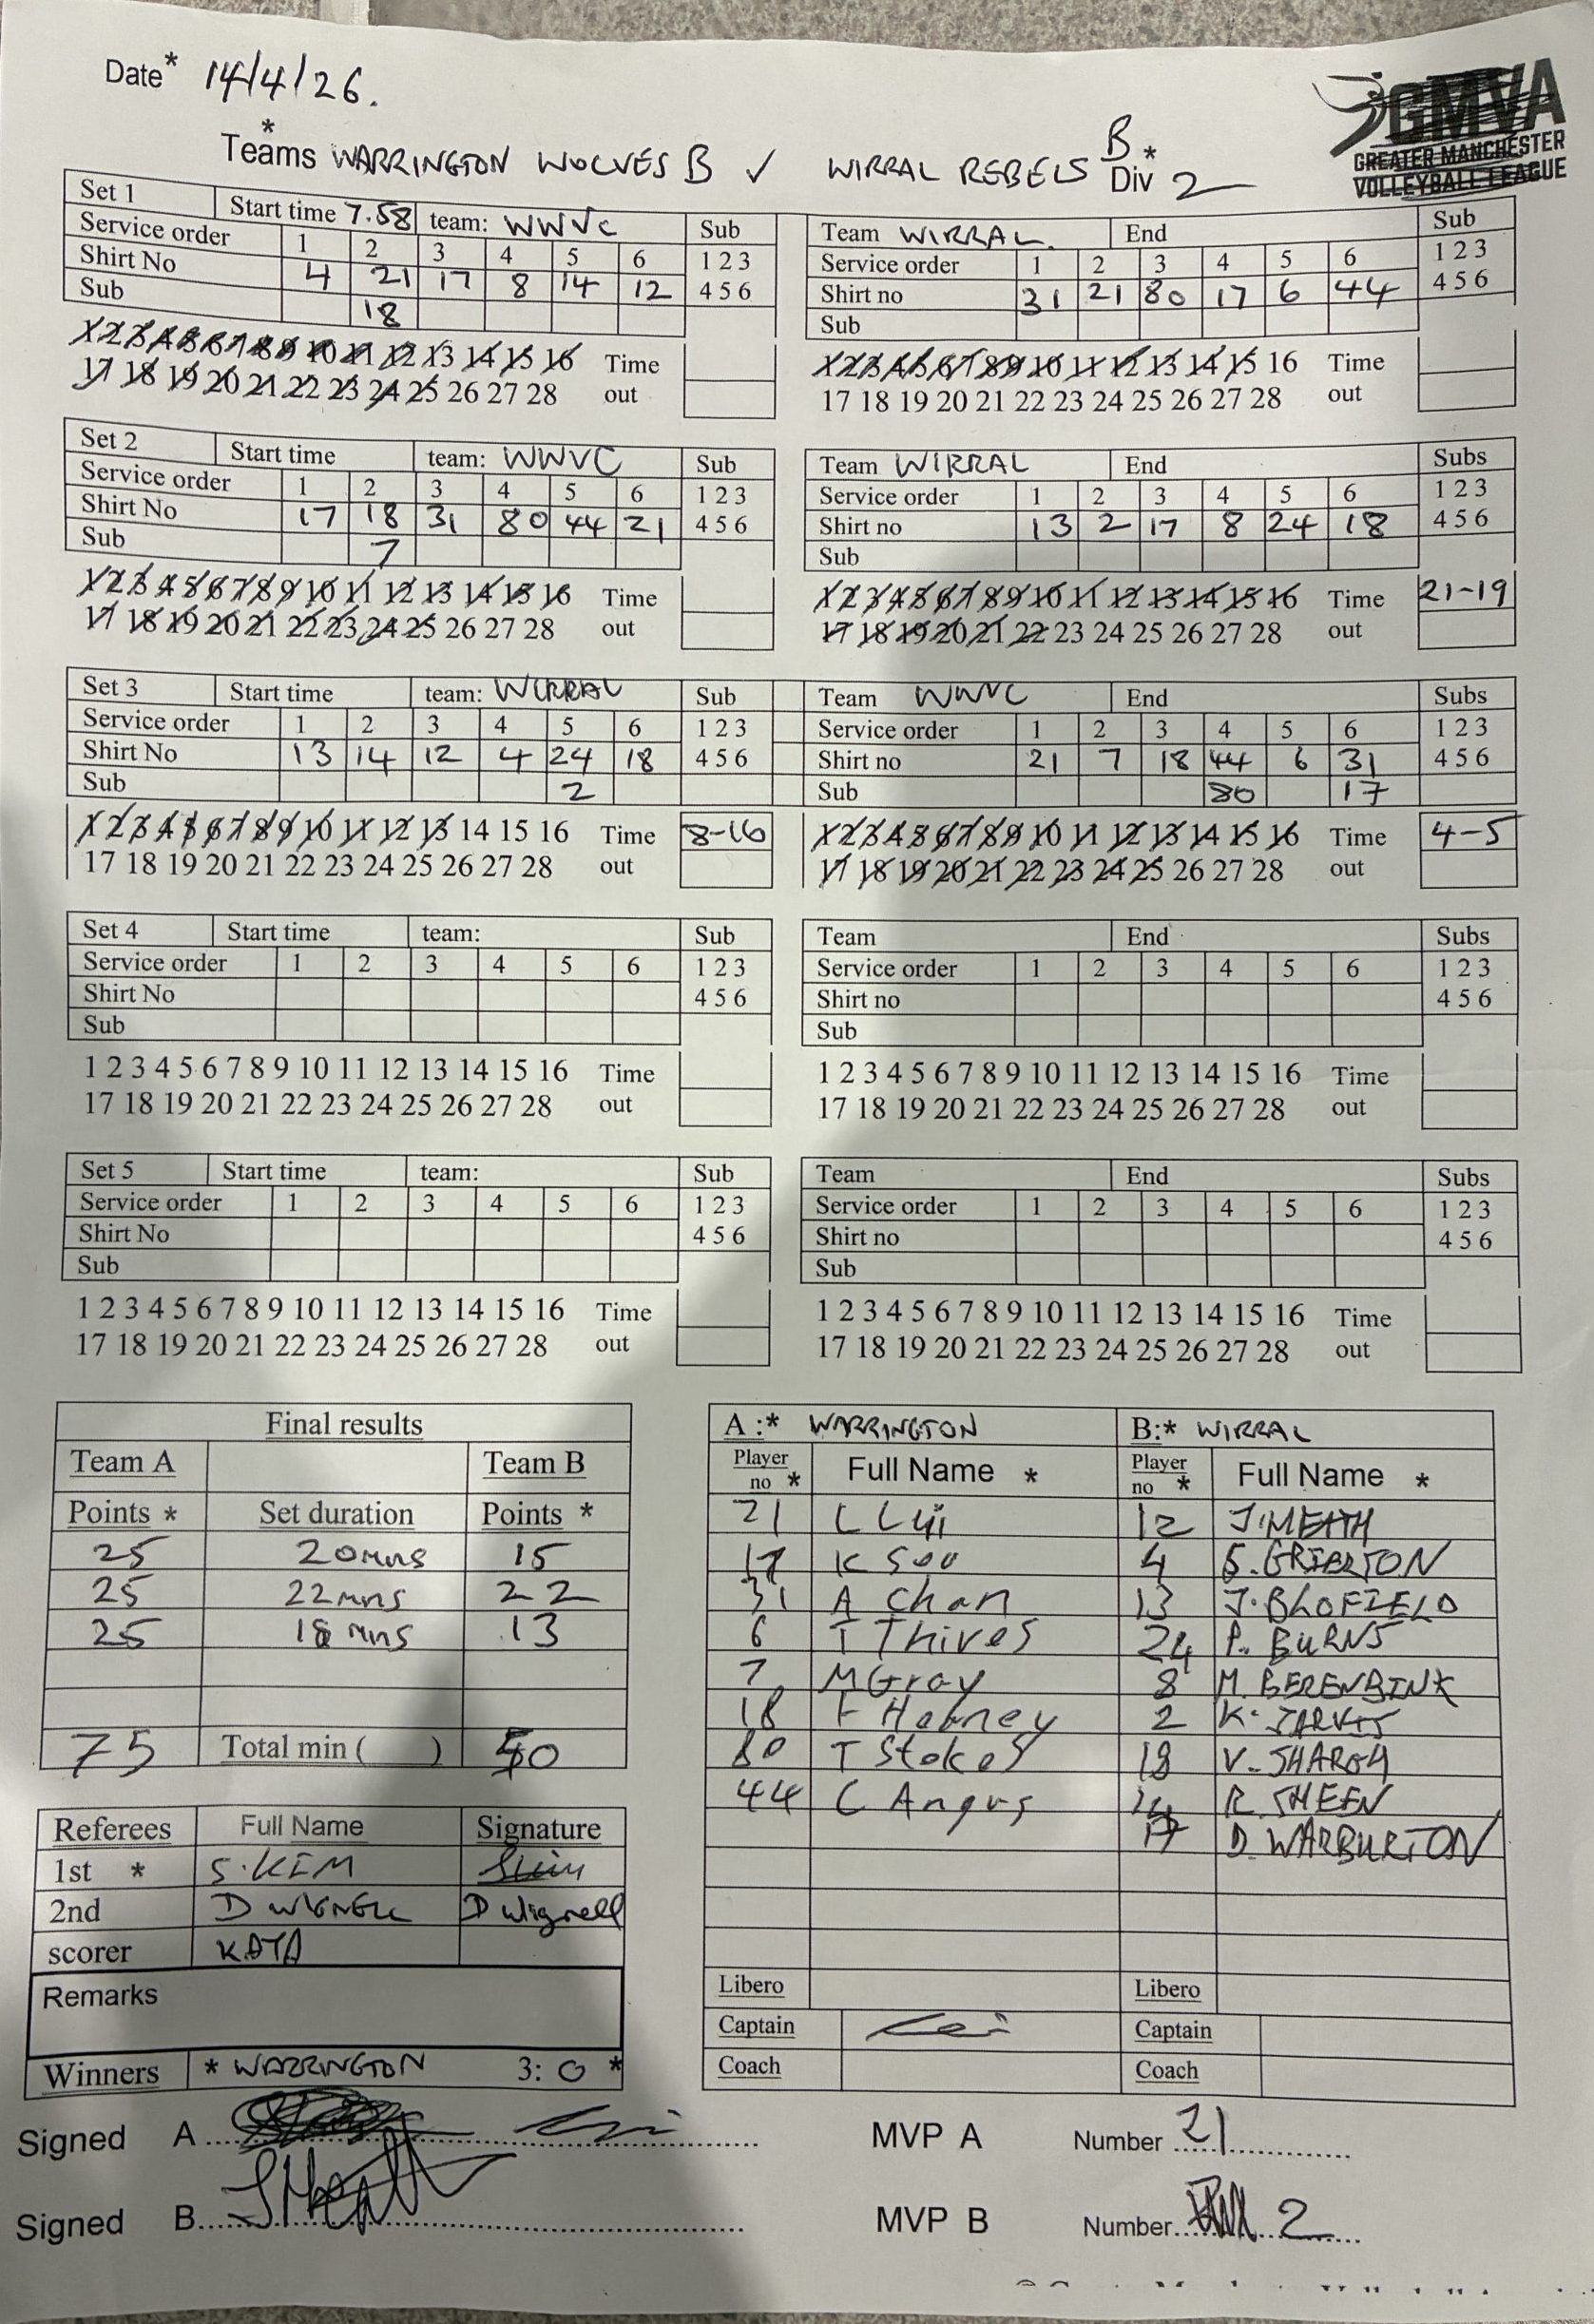 Date* 14/4/26.
GMVA
GREATER MANCHESTER
VOLLEYBALL LEAGUE
Teams* WARRINGTON WOLVES B v WIRRAL REBELS B Div* 2
Set 1 Start time 7.58 team: WWVC Sub
Service order 1 2 3 4 5 6 1 2 3
Shirt No 4 21 17 8 14 12 4 5 6
Sub 18
1 2 3 4 5 6 7 8 9 10 11 12 13 14 15 16 Time
17 18 19 20 21 22 23 24 25 26 27 28 out
Team WIRRAL. End Sub
Service order 1 2 3 4 5 6 1 2 3
Shirt no 31 21 80 17 6 44 4 5 6
Sub
1 2 3 4 5 6 7 8 9 10 11 12 13 14 15 16 Time
17 18 19 20 21 22 23 24 25 26 27 28 out
Set 2 Start time team: WWVC Sub
Service order 1 2 3 4 5 6 1 2 3
Shirt No 17 18 31 80 44 21 4 5 6
Sub 7
1 2 3 4 5 6 7 8 9 10 11 12 13 14 15 16 Time
17 18 19 20 21 22 23 24 25 26 27 28 out
Team WIRRAL End Subs
Service order 1 2 3 4 5 6 1 2 3
Shirt no 13 2 17 8 24 18 4 5 6
Sub
1 2 3 4 5 6 7 8 9 10 11 12 13 14 15 16 Time 21-19
17 18 19 20 21 22 23 24 25 26 27 28 out
Set 3 Start time team: WIRRAL Sub
Service order 1 2 3 4 5 6 1 2 3
Shirt No 13 14 12 4 24 18 4 5 6
Sub 2
1 2 3 4 5 6 7 8 9 10 11 12 13 14 15 16 Time 8-16
17 18 19 20 21 22 23 24 25 26 27 28 out
Team WWVC End Subs
Service order 1 2 3 4 5 6 1 2 3
Shirt no 21 7 18 44 6 31 4 5 6
Sub 80 17
1 2 3 4 5 6 7 8 9 10 11 12 13 14 15 16 Time 4-5
17 18 19 20 21 22 23 24 25 26 27 28 out
Set 4 Start time team: Sub
Service order 1 2 3 4 5 6 1 2 3
Shirt No 4 5 6
Sub
1 2 3 4 5 6 7 8 9 10 11 12 13 14 15 16 Time
17 18 19 20 21 22 23 24 25 26 27 28 out
Team End Subs
Service order 1 2 3 4 5 6 1 2 3
Shirt no 4 5 6
Sub
1 2 3 4 5 6 7 8 9 10 11 12 13 14 15 16 Time
17 18 19 20 21 22 23 24 25 26 27 28 out
Set 5 Start time team: Sub
Service order 1 2 3 4 5 6 1 2 3
Shirt No 4 5 6
Sub
1 2 3 4 5 6 7 8 9 10 11 12 13 14 15 16 Time
17 18 19 20 21 22 23 24 25 26 27 28 out
Team End Subs
Service order 1 2 3 4 5 6 1 2 3
Shirt no 4 5 6
Sub
1 2 3 4 5 6 7 8 9 10 11 12 13 14 15 16 Time
17 18 19 20 21 22 23 24 25 26 27 28 out
Final results
Team A Team B
Points * Set duration Points *
25 20mns 15
25 22mns 22
25 18mns 13
75 Total min ( ) 50
Referees Full Name Signature
1st * S.KIM
2nd D WIGNELL D Wignell
scorer KATA
Remarks
Winners * WARRINGTON 3: 0 *
A :* WARRINGTON B:* WIRRAL
Player no * Full Name * Player no * Full Name *
21 L Lui 12 J.MEATH
17 K Soo 4
31 A Chan 13 J.BLOFIELD
6 T Thives 24 P. BURNS
7 M Gray 8 M. BERENBINK
18 F Hebney 2 K. JARVIS
80 T Stokes 18 V. SHARGH
44 C Angus 14 R. SHEEN
17 D. WARBURTON
Libero Libero
Captain Captain
Coach Coach
Signed A MVP A Number 21
Signed B MVP B Number 2